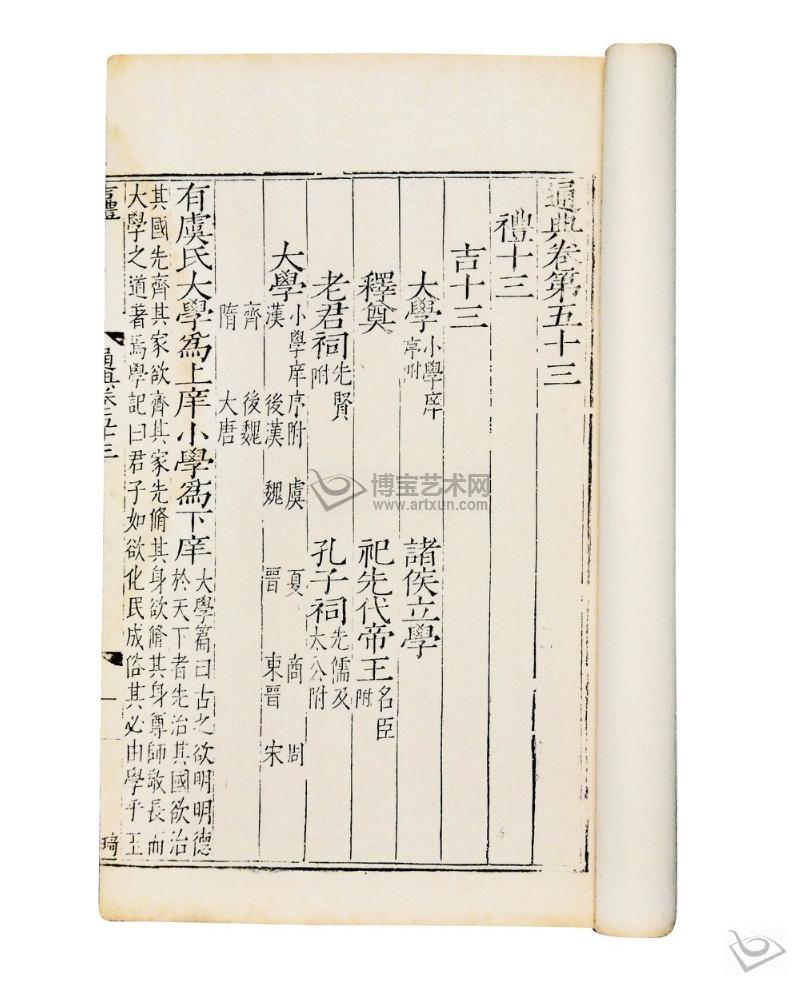 通典卷第五十三
禮十三
吉十三
大學小學庠序附 諸侯立學
釋奠 祀先代帝王名臣附
老君祠先賢附 孔子祠先儒及太公附
大學小學庠序附 虞 夏 商 周
漢 後漢 魏 晉 東晉 宋
齊 後魏
隋 大唐
有虞氏大學爲上庠小學爲下庠大學篇曰古之欲明明德
於天下者先治其國欲治
其國先齊其家欲齊其家先脩其身欲脩其身尊師敬長而
大學之道著焉學記曰君子如欲化民成俗其必由學乎王
吉禮
通典卷五十三
一
博宝艺术网
www.artxun.com